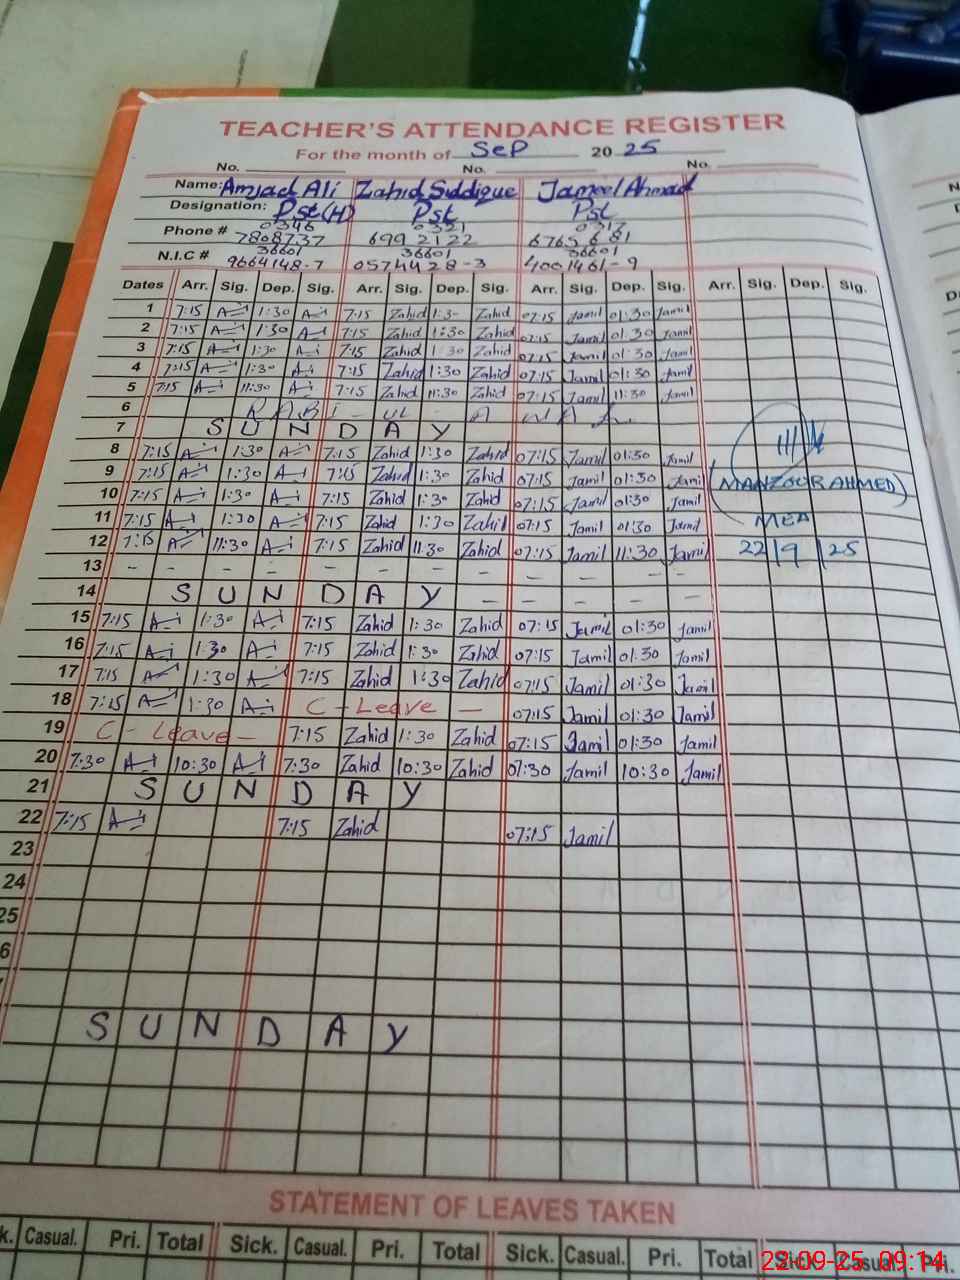 TEACHER'S ATTENDANCE REGISTER
For the month of Sep 20 25
No. No. No.
Name: Amjad Ali Zahid Siddique Jameel Ahmad
Designation: Pst(H) Pst Pst
Phone # 0346 7808737 0321 6992122 0317 6765681
N.I.C # 36601 9664148-7 36601 0574428-3 36601 4001461-9
Dates Arr. Sig. Dep. Sig. Arr. Sig. Dep. Sig. Arr. Sig. Dep. Sig. Arr. Sig. Dep. Sig.
1 7:15 1:30 7:15 Zahid 1:3- Zahid 07:15 Jamil 01:30 Jamil
2 7:15 1:30 7:15 Zahid 1:30 Zahid 07:15 Jamil 01:30 Jamil
3 7:15 1:30 7:15 Zahid 1:30 Zahid 07:15 Jamil 01:30 Jamil
4 7:15 1:30 7:15 Zahid 1:30 Zahid 07:15 Jamil 01:30 Jamil
5 7:15 11:30 7:15 Zahid 11:30 Zahid 07:15 Jamil 11:30 Jamil
6 RABI - UL - AWAL
7 SUNDAY
8 7:15 1:30 7:15 Zahid 1:30 Zahid 07:15 Jamil 01:30 Jamil
9 7:15 1:30 7:15 Zahid 1:30 Zahid 07:15 Jamil 01:30 Jamil
(MANZOOR AHMED)
10 7:15 1:30 7:15 Zahid 1:30 Zahid 07:15 Jamil 01:30 Jamil
11 7:15 1:30 7:15 Zahid 1:30 Zahid 07:15 Jamil 01:30 Jamil
MEA
12 7:15 11:30 7:15 Zahid 11:30 Zahid 07:15 Jamil 11:30 Jamil 22/9/25
13 - - - - - - - - - - - -
14 SUNDAY - - - - -
15 7:15 1:30 7:15 Zahid 1:30 Zahid 07:15 Jamil 01:30 Jamil
16 7:15 1:30 7:15 Zahid 1:30 Zahid 07:15 Jamil 01:30 Jamil
17 7:15 1:30 7:15 Zahid 1:30 Zahid 07:15 Jamil 01:30 Jamil
18 7:15 1:30 C - Leave - 07:15 Jamil 01:30 Jamil
19 C - Leave - 7:15 Zahid 1:30 Zahid 07:15 Jamil 01:30 Jamil
20 7:30 10:30 7:30 Zahid 10:30 Zahid 07:30 Jamil 10:30 Jamil
21 SUNDAY
22 7:15 7:15 Zahid 07:15 Jamil
23
24
25
6
SUNDAY
STATEMENT OF LEAVES TAKEN
k. Casual. Pri. Total Sick. Casual. Pri. Total Sick. Casual. Pri. Total Sick. Casual. Pri.
22-09-25 09:14